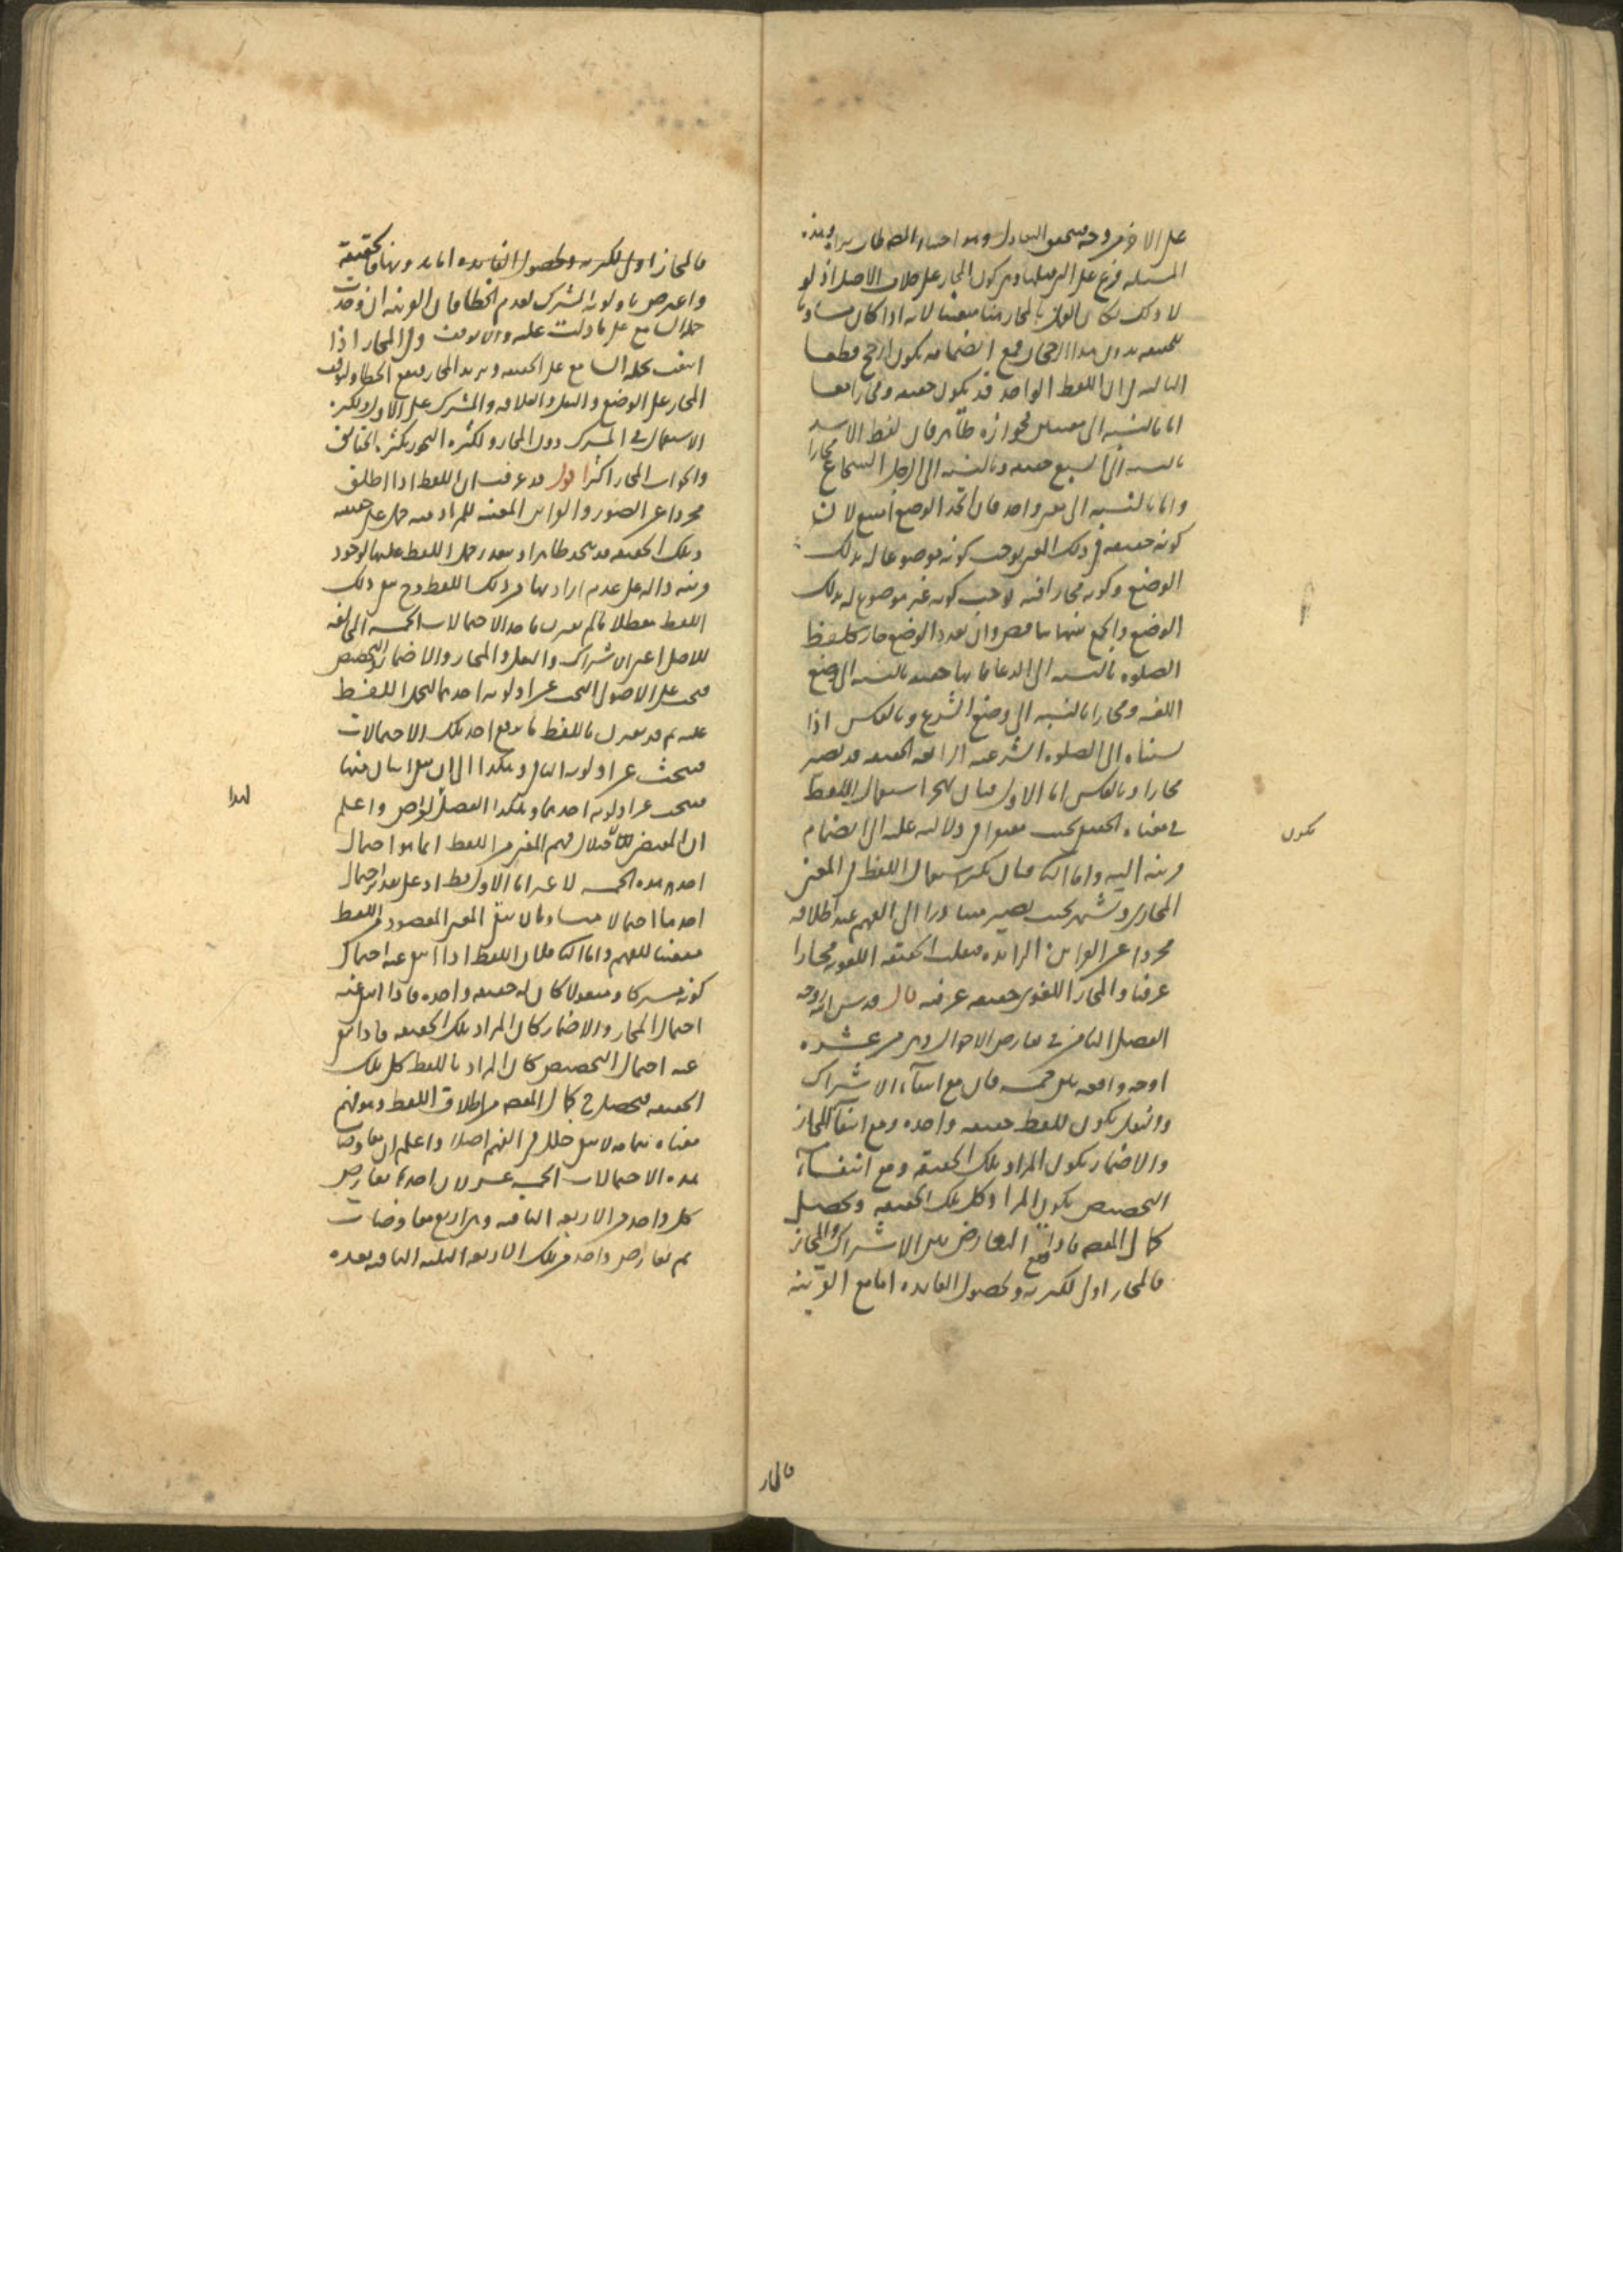 على الاخر من وجه فيتحقق التعادل وهو اختيار المصنف طاب ثراه وهذه
المسئلة فرع على التي قبلها وهي كون المجاز على خلاف الاصل اذ لو
لا ذلك لكان القول بالمجاز هنا متعينا لانه اذا كان مساويا
للحقيقة بدون هذا الرجحان فمع انضمامه يكون ارجح قطعا
الثالثة في ان اللفظ الواحد قد يكون حقيقة ومجازا معا
اما بالنسبة الى معنيين فجوازه ظاهر فان لفظ الاسد
بالنسبة الى السبع حقيقة وبالنسبة الى الرجل الشجاع مجازا
واما بالنسبة الى معنى واحد فان اتحد الوضع امتنع لان
كونه حقيقة في ذلك المعنى يوجب كونه موضوعا له بذلك
الوضع وكونه مجازا فيه يوجب كونه غير موضوع له بذلك
الوضع والجمع بينهما تناقض وان تعدد الوضع جاز كلفظ
الصلوة بالنسبة الى الدعا فانها حقيقة بالنسبة الى وضع
اللغه ومجازا بالنسبه الى وضع الشرع وبالعكس اذا
نسبناه الى الصلوة الشرعية الرابعة الحقيقة قد تصير
مجازا وبالعكس اما الاول فبان يهجر استعمال اللفظ
في معناه الحقيقي بحيث يفتقر في دلالته عليه الى انضمام
قرينة اليه واما الثاني فبان يكثر استعمال اللفظ في المعنى
المجازي ويشتهر بحيث يصير متبادرا الى الفهم عند اطلاقه
مجردا عن القراين الزايدة فيقلب الحقيقة اللغوية مجازا
عرفيا والمجاز اللغوي حقيقة عرفية قال قدس الله روحه
الفصل الثامن في تعارض الاحوال وهي من عشرة
اوجه واقعة بين خمسة فان مع انتفاء الاشتراك
والنقل يكون للفظ حقيقة واحدة ومع انتفاء المجاز
والاضمار يكون المراد تلك الحقيقة ومع انتفاء
التخصيص يكون المراد كل تلك الحقيقة ويحصل
كمال الفهم فاذا وقع التعارض بين الاشتراك والمجاز
فالمجاز اولى لكثرته ولحصول الفايده اما مع القرينة
يكون
فالمجاز
فالمجاز اولى لكثرته ولحصول الفايده اما بدونها فالحقيقة
واعترض باولوية المشترك لعدم الخطا فان القرينة ان وجدت
حمل السامع على ما دلت عليه والا توقف وفي المجاز اذا
انتفت يحمله السامع على الحقيقة ويريد المجاز فيقع الخطا ولتوقف
المجاز على الوضع والنقل والعلاقة والمشترك على الاول ولكثرة
الاستعمال في المشترك دون المجاز ولكثرة التجوز بكثرة الحقايق
والجواب المجاز اكثر اقول قد عرفت ان اللفظ اذا اطلق
مجردا عن الصور والقراين المعينة للمراد منه حمل على حقيقته
وتلك الحقيقة قد تتحد ظاهرا ويتعذر حمل اللفظ عليها لوجود
قرينة دالة على عدم ارادتها من ذلك اللفظ وح يبقى ذلك
اللفظ معطلا ما لم يقترن باحد الاحتمالات الخمسة المخالفة
للاصل اعني الاشتراك والنقل والمجاز والاضمار والتخصيص
فيجب على الاصولي البحث عن اولوية احدهما ليحمل اللفظ
عليه ثم قد يقترن باللفظ ما يرفع احد تلك الاحتمالات
فيبحث عن اولوية الباقي وهكذا الى ان يبقى اثنان منها
فيبحث عن اولوية احدهما وبهذا الفصل غرض واعلم
ان المقتضي لاختلال فهم المعنى من اللفظ انما هو احتمال
احد هذه الخمسة لا غير اما الاول
احدها احتمالا مساويا لا يبقى المعنى المقصود من اللفظ
متعينا للفهم واما الثاني فلان اللفظ اذا انتفى عنه احتمال
كونه مشتركا ومنقولا كان له حقيقة واحدة فاذا انتفى عنه
احتمال المجاز والاضمار كان المراد تلك الحقيقة فاذا انتفى
عنه احتمال التخصيص كان المراد باللفظ كل تلك
الحقيقة فيحصل ح كمال الفهم من اطلاق اللفظ وهو فهم
معناه بتمامه لا يبقى خلل في الفهم اصلا واعلم ان تعارضات
هذه الاحتمالات الخمسة عشرة لان احدها يعارض
كل واحد من الاربعة الباقية وهي اربع تعارضات
ثم تعارض واحد من تلك الاربعة الثلثة الباقية بعده
لهذا